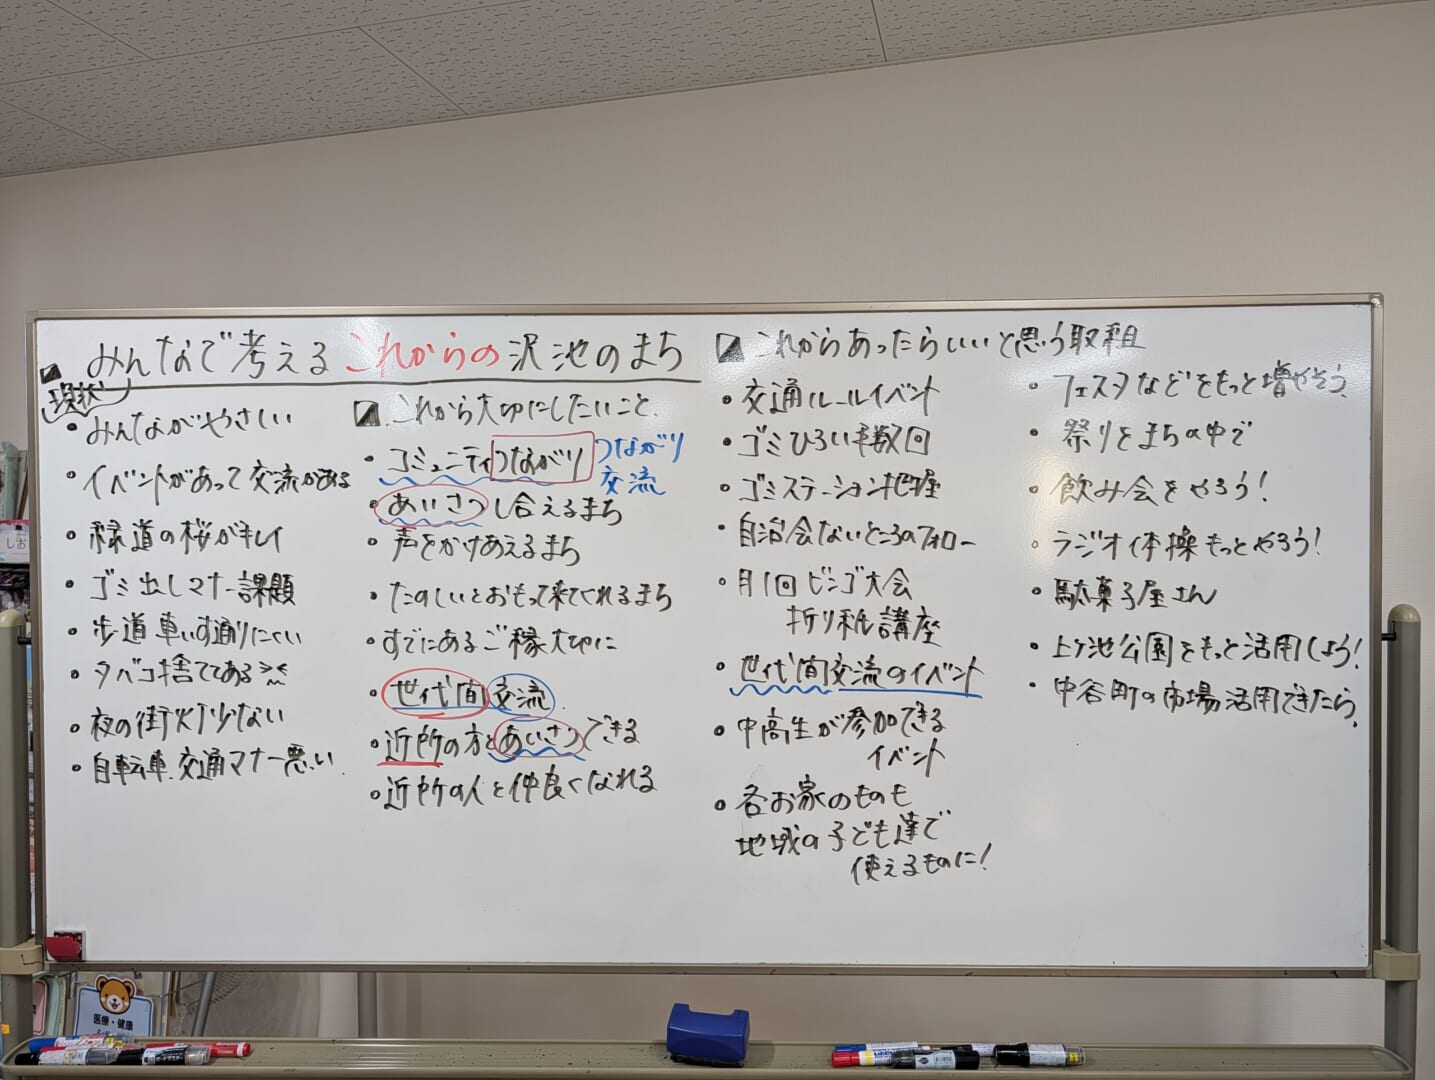 みんなで考えるこれからの沢池のまち
現状
・みんながやさしい
・イベントがあって交流がある
・緑道の桜がキレイ
・ゴミ出しマナー課題
・歩道車いす通りにくい
・タバコ捨ててある
・夜の街灯少ない
・自転車、交通マナー悪い
これから大切にしたいこと
・コミュニティつながり
つながり
交流
・あいさつし合えるまち
・声をかけあえるまち
・たのしいとおもって来てくれるまち
・すでにあるご縁大切に
・世代間交流
・近所の方とあいさつできる
・近所の人と仲良くなれる
これからあったらいいと思う取組
・交通ルールイベント
・ゴミひろい手数回
・ゴミステーション把握
・自治会ないところのフォロー
・月1回ビンゴ大会
折り紙講座
・世代間交流のイベント
・中高生が参加できる
イベント
・各お家のものも
地域の子ども達で
使えるものに!
・フェスタなどをもっと増やそう
・祭りをまちの中で
・飲み会をやろう!
・ラジオ体操もっとやろう!
・駄菓子屋さん
・上ヶ池公園をもっと活用しよう!
・中谷町の市場活用できたら
医療・健康